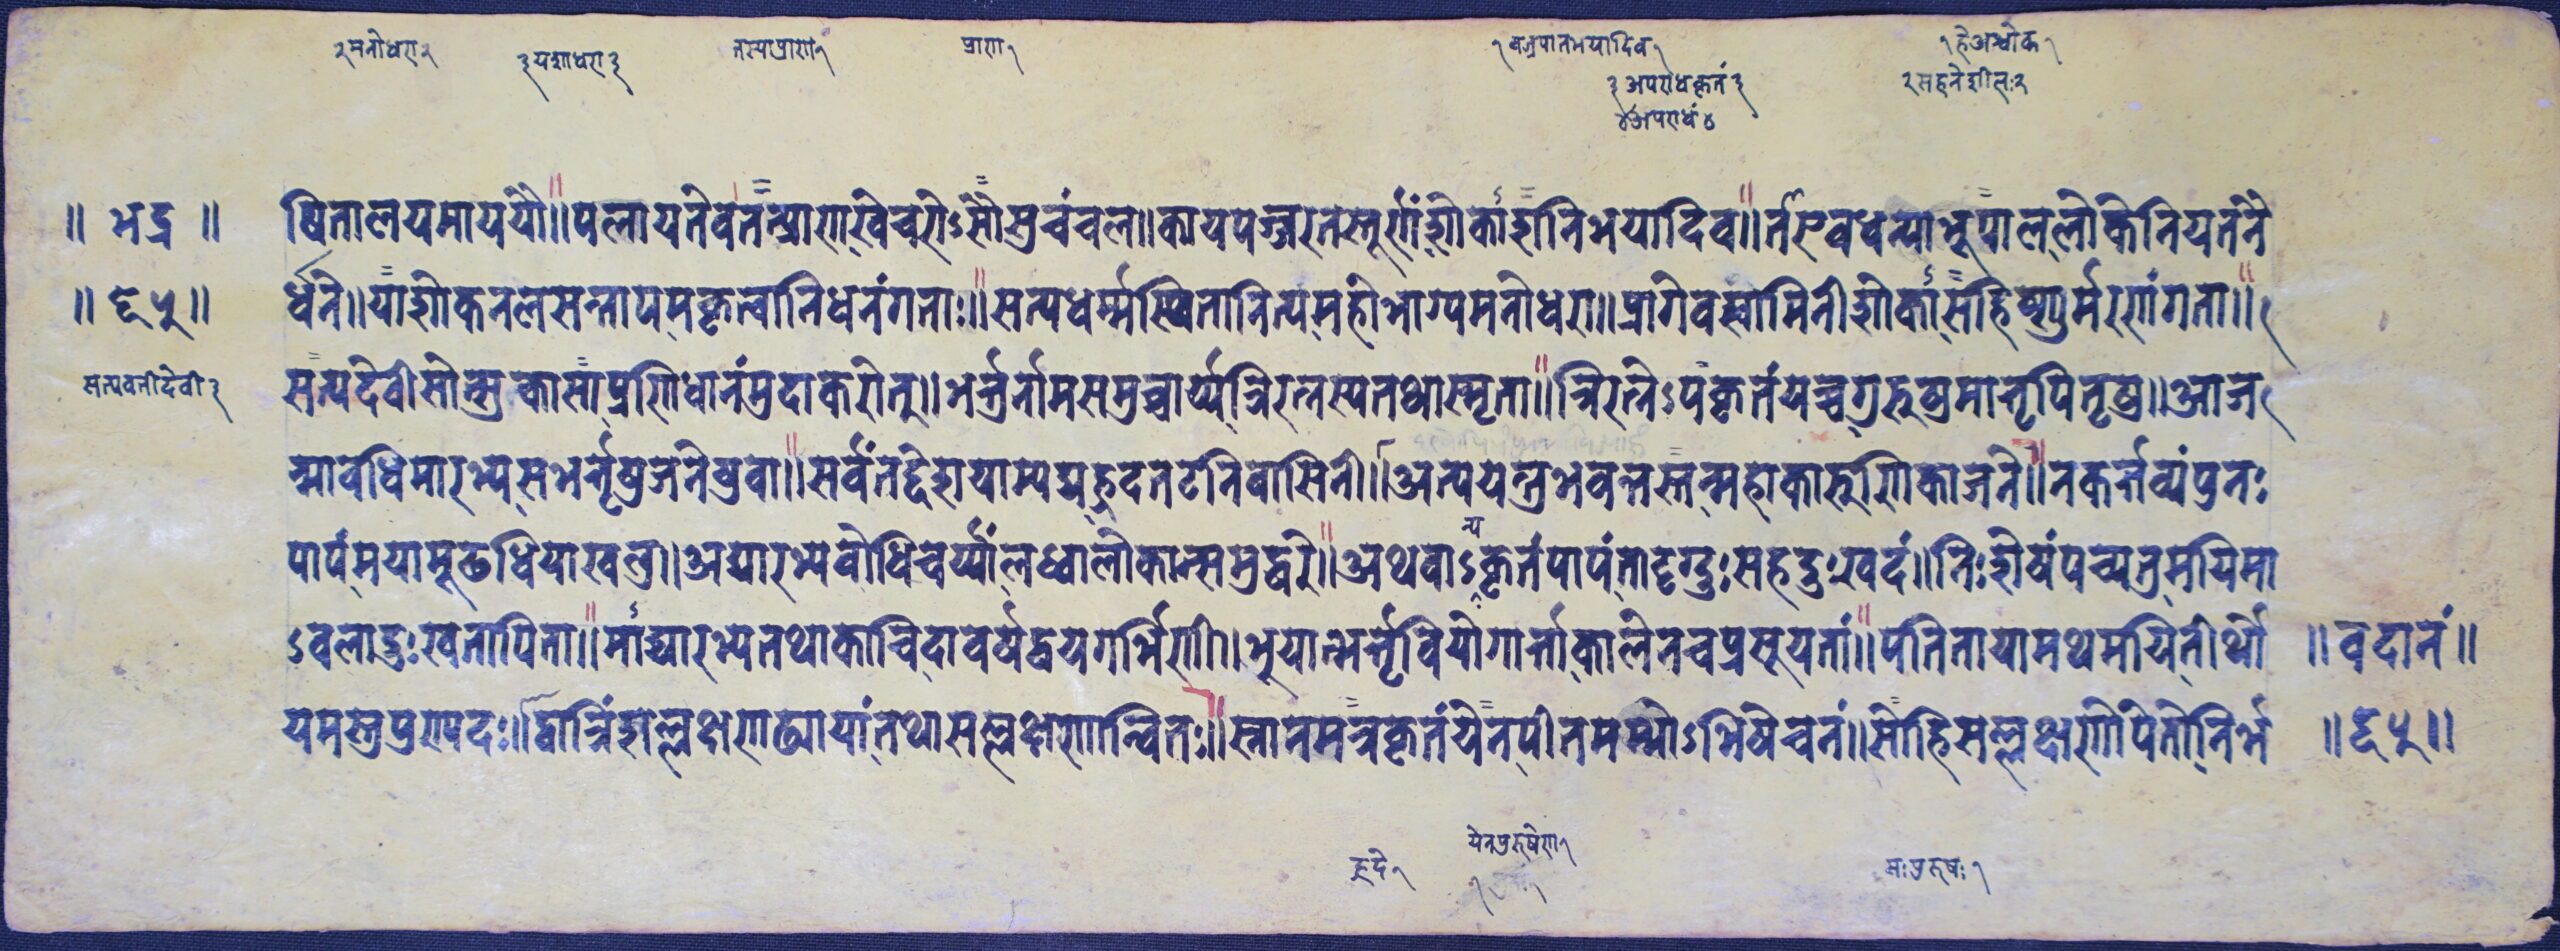 २मनोधरा२
३यशोधरा३
तस्यप्राणा१
प्राणा१
१वज्रपातभयादिव१
१हेअश्वोक१
३अपराधकृतं३
२सहनेशीलः२
४अपराधं४
॥ भद्र ॥
षितालयमाययौ॥पलायतेवतत्प्राणाखेचरोऽसौसुचंचल॥कायपञ्जरतस्तूर्णंशोकाशनिभयादिव॥
र्धने॥याशोकनलसन्तापमकृत्वानिधनंगताः॥सत्यधर्म्मस्थितानित्यंमहोभाग्यमनोधरा॥प्रागेवस्वामिनोशोकासहिष्णुर्मरणंगता॥
सत्यवतीदेवी३
सत्यदेवीसोत्सुकासाप्रणिधानंमुदाकरोत्॥भर्त्तुर्नामसमुच्चार्य्यत्रिरत्नस्यतथास्मृता॥त्रिरत्नेऽपकृतंयच्चगुरुषुमातृपितृषु॥आज
न्मावधिमारभ्यसभर्तृषुजनेषुवा॥सर्वंतद्देशयाम्यद्यह्रदतटनिवासिनी॥अत्ययेनुभवन्तस्तन्महाकारुणिकाजने॥नकर्त्तव्यंपुनः
पापंमयामूढधियाखलु॥अद्यारभ्यबोधिचर्य्यांलध्वालोकान्समुद्धरे॥अथवाऽन्यकृतंपापंतादृग्दुःसहदुःखदं॥निःशेषंपच्यतुमयिमा
ऽबलादुःखतापिता॥माद्यारभ्यतथाकाचिदावर्षद्वयगर्भिणी॥भुयात्भर्तृवियोगार्त्ताकालेनचप्रसूयतां॥पतितायामथमयितीर्थो
॥ वदानं ॥
यमस्तुपुण्यदः॥द्वात्रिंशल्लक्षणाढ्यायांतथासल्लक्षणान्वितः॥स्नानमत्रकृतंयेनपीतमम्भोऽभिषेचनं॥सोहिसल्लक्षणोपेतोनिर्भ
ह्रदे१
येनपुरुषेण१
सःपुरुषः१